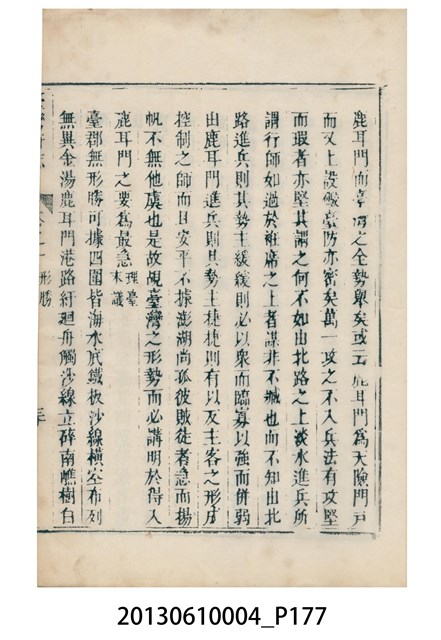 鹿耳門而臺灣之全勢舉矣或云鹿耳門為天險門戶
而又上設礮臺防亦密矣萬一攻之不入兵法有攻堅
而瑕者亦堅其謂之何不如由北路之上淡水進兵所
謂行師如過於袵席之上者謀非不臧也而不知由北
路進兵則其勢主緩緩則必以衆而臨寡以強而併弱
由鹿耳門進兵則其勢主捷捷則有以反主客之形成
控制之師而且安平不據澎湖尚孤彼敗徒者急而揚
帆不無他虞也是故覘臺灣之形勢而必講明於得入
鹿耳門之要為最急理臺末議
臺郡無形勝可據四圍皆海水底鐵板沙線橫空布列
無異金湯鹿耳門港路紆迴舟觸沙線立碎南礁樹白
形勝
20130610004_P177